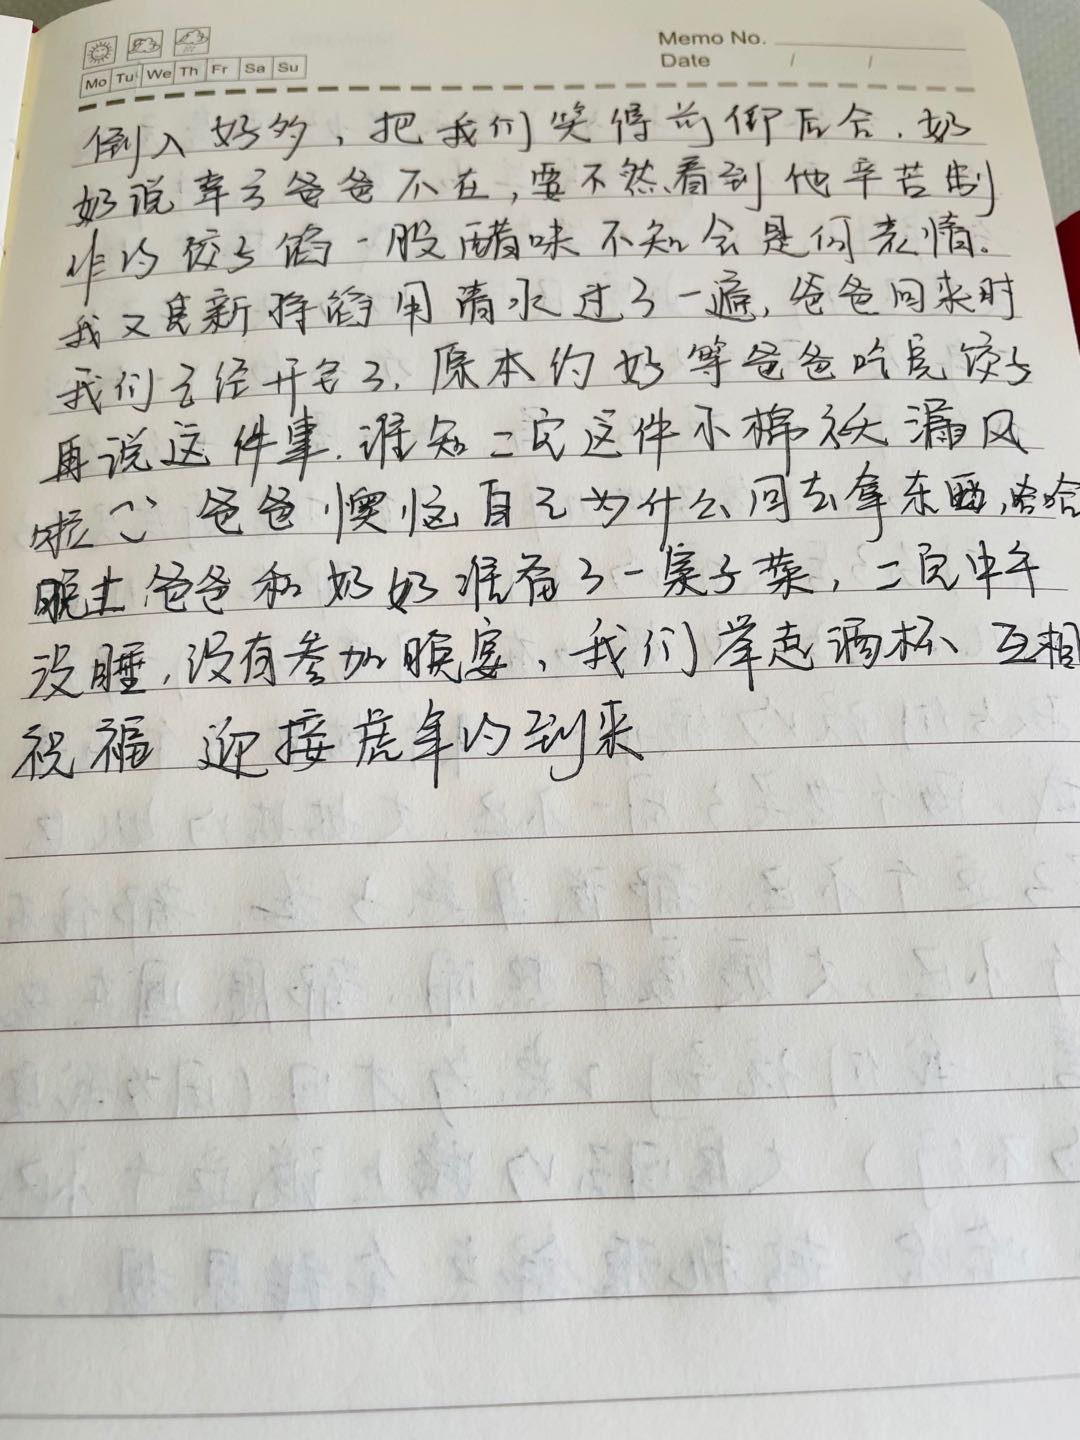 Memo No.
Date / /
Mo Tu We Th Fr Sa Su
倒入好多，把我们笑得前仰后合．奶
奶说幸亏爸爸不在，要不然看到他辛苦制
作的饺子馅一股醋味不知会是何表情．
我又重新将馅用清水过了一遍，爸爸回来时
我们已经开包了．原本约好等爸爸吃完饺子
再说这件事．谁知二宝这件小棉袄漏风
啦 爸爸懊恼自己为什么回去拿东西，哈哈
晚上爸爸和奶奶准备了一桌子菜，二宝中午
没睡，没有参加晚宴、我们举起酒杯、互相
祝福 迎接虎年的到来